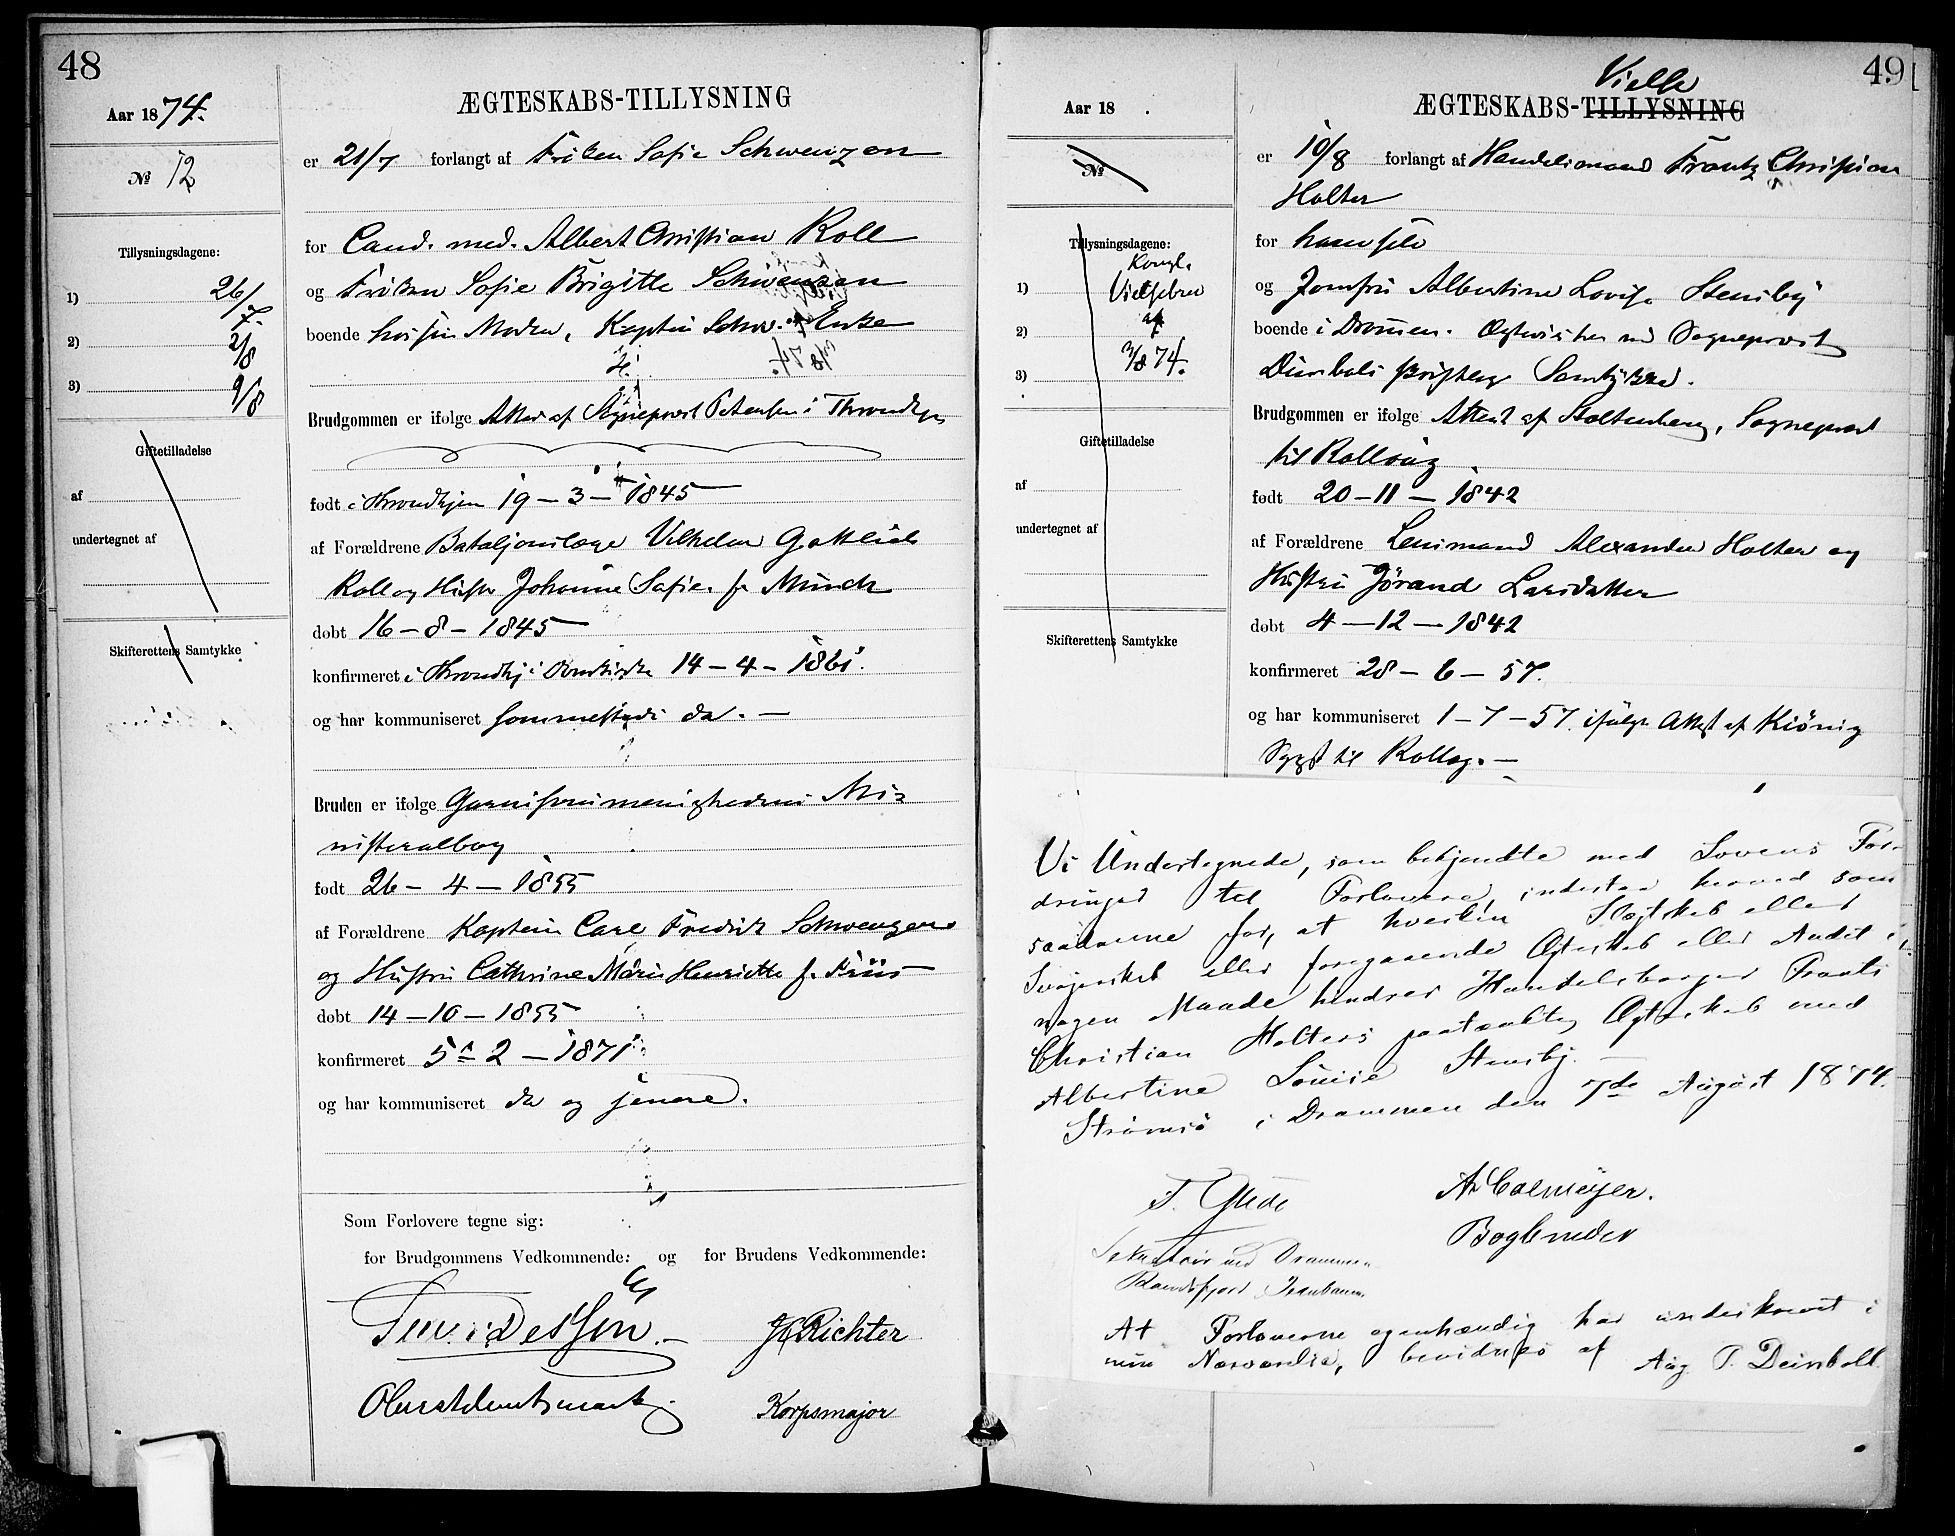 48
Aar 1874.
№ 12
Tillysningsdagene:
1) 26/7.
2) 2/8
3) 9/8
Giftetilladelse
af
undertegnet af
Skifterettens Samtykke
ÆGTESKABS-TILLYSNING
er 21/7 forlangt af Frøken Sofie Schwenzen
for Cand. med. Albert Christian Roll
og Frøken Sofie Brigitte Schwenzen
boende hos sin Moder, Kaptein Schw. Enke
Brudgommen er ifølge Attest af Sogneprest Petersen i Throndhjem
født i Throndhjem 19-3-1845
af Forældrene Bataljonslæge Vilhelm Gottlieb
Roll og Hustru Johanne Sofie f. Münch
døbt 16-8-1845
konfirmeret i Throndhj Domkirke 14-4-1861.
og har kommuniseret sammesteds da.
Bruden er ifølge Garnisonsmenighedens Mi-
nisterialbog
født 26-4-1855
af Forældrene Kaptein Carl Fredrik Schwenzen
og Hustru Cathrine Marie Henriette f. Friis
døbt 14-10-1855
konfirmeret 5-2-1871
og har kommuniseret da og senere.
Som Forlovere tegne sig:
for Brudgommens Vedkommende: og for Brudens Vedkommende:
Richter
Korpsmajor
49
Aar 18 .
№
Tillysningsdagene:
Kongl.
1) Vielsebrev
2) af
3/8 74.
3)
Giftetilladelse
af
undertegnet af
Skifterettens Samtykke
Vielse
ÆGTESKABS-TILLYSNING
er 10/8 forlangt af Handelsmand Frantz Christian
Holter
for ham selv
og Jomfru Albertine Lovise Stensby
boende i Drammen. Egtevies her med Sogneprest
Deinbolls skriftlige Samtykke.
Brudgommen er ifølge Attest af Stoltenberg, Sogneprest
til Rollaug
født 20-11-1842
af Forældrene Lensmand Alexander Holter og
Hustru Jørand Larsdatter
døbt 4-12-1842
konfirmeret 28-6-57.
og har kommuniseret 1-7-57. ifølge Attest af Kiönig
Sgpst til Rollag.
Vi Undertegnede, som bekjendte med Lovens For-
dringer til Forlovere, indestaa herved som
saadanne for, at hverken Slægtskab eller
Svogerskab eller foregaaende Ægteskab eller Andet i
nogen Maade hindrer Handelsborger Frants
Christian Holters paatænkte Ægteskab med
Albertine Louise Stensby.
Strömsö i Drammen den 7de August 1874.
T. Glede
A Calmeyer.
Sekretair ved Drammen
Bogbinder
Randsfjord Jernbane.
At Forloverne egenhændig har underskrevet i
min Nærværelse, bevidnes af Aug. P. Deinboll